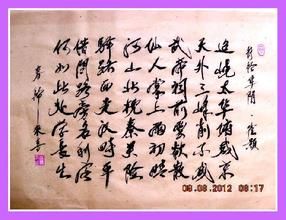 行經華陰·崔颢
岧峣太华俯咸京
天外三峰削不成
武帝祠前雲欲散
仙人掌上雨初晴
河山北枕秦關險
驿路西連漢畤平
借問路旁名利客
何如此處学長生
09.08.2012 08:17